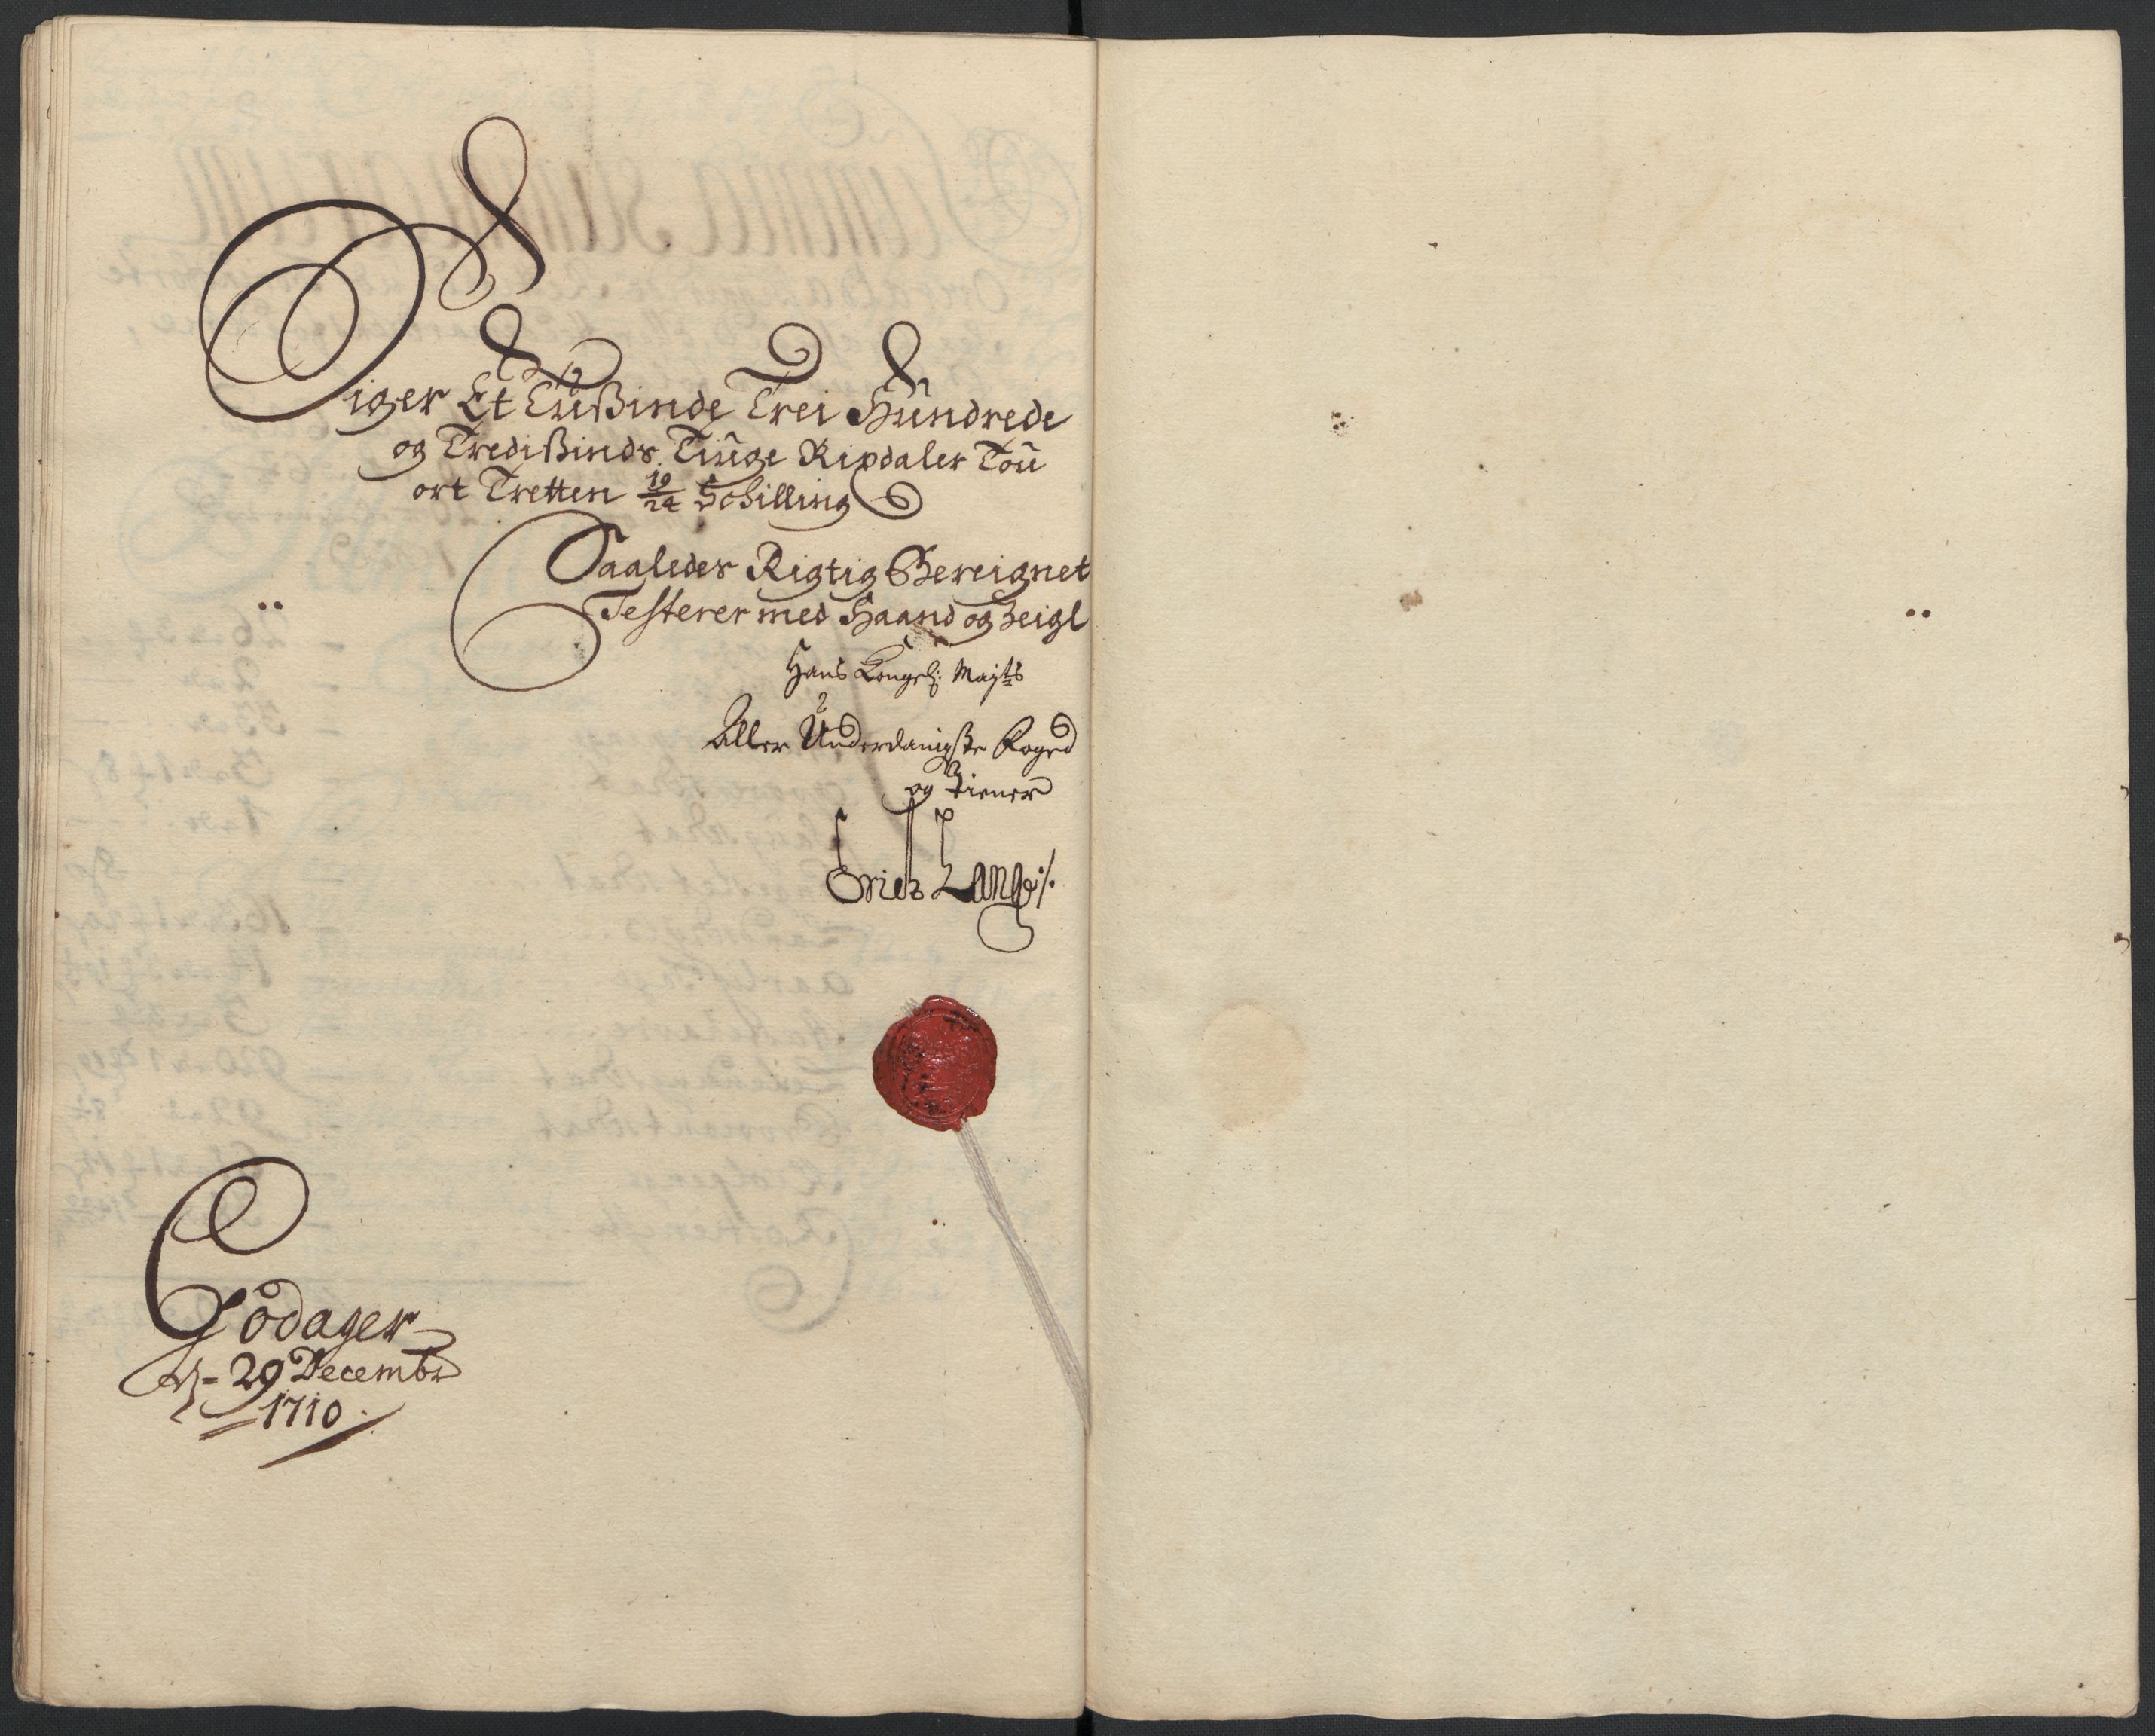 Siger Et Tußinde Trei Hundrede
og Tredißinds Tiuge Rixdaler Tou
ort Tretten 19/24 Schilling
Saaledes Rigtig Bereignet
Testerer med Haand og Zeigl
Hans Kongel: Mayts
Aller Underdanigste Foged
og Tiener
Erich Lange
Godager
d- 29 Decembr
1710.